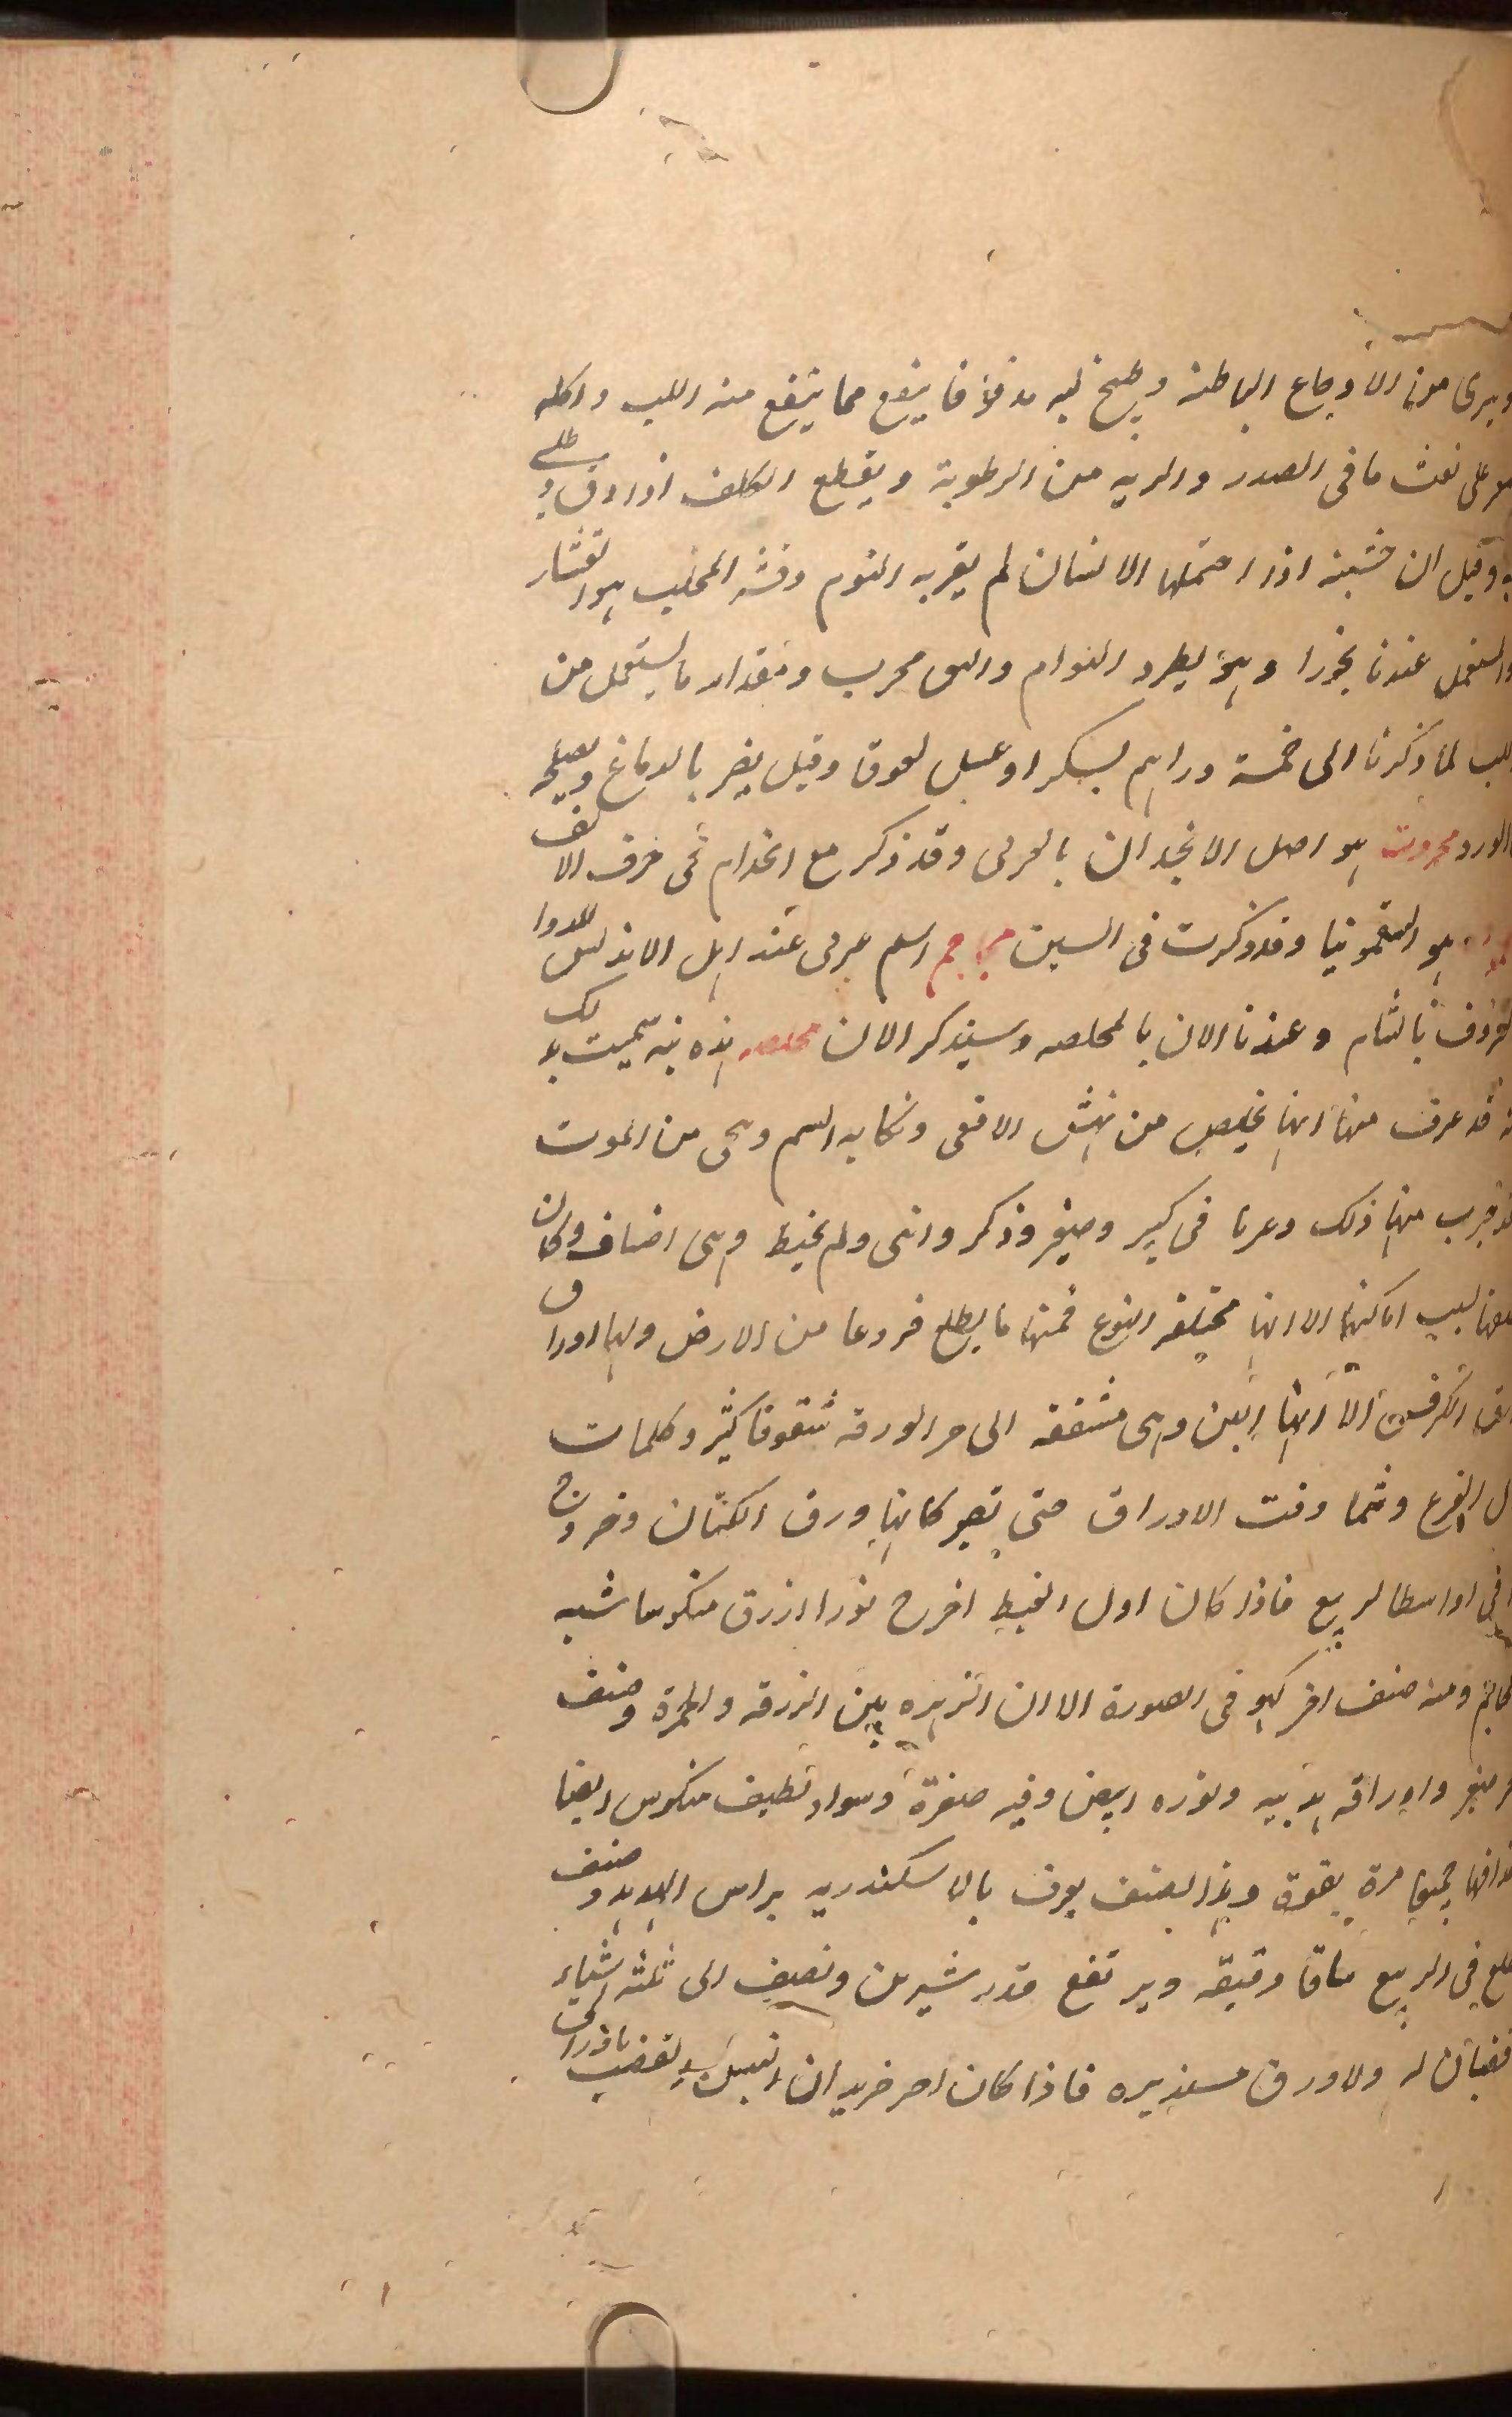 ويبرى من الاوجاع الباطنه وطبيخ لبه مدقوقا ينفع مما ينفع منه اللب واكله
على نفث ما فى الصدر والريه من الرطوبة ويقطع الكلف اذا دق وطلى
به وقيل ان خشبه اذا احتملها الانسان لم يقربه النوم وقشر المحلب هو
والمستعمل عندنا بخورا وهو يطرد الهوام والبق مجرب ومقدار ما يستعمل من
اللب لما ذكرنا الى خمسة دراهم بسكر او عسل لعوقا وقيل يضر بالدماغ ويصلحه
الورد محروث هو اصل الانجدان بالعربى وقد ذكر مع انجدان فى حرف الالف
هو السقمونيا وقد ذكرت فى السين محاجم اسم عربى عند اهل الاندلس للدوا
المعروف بالشام وعندنا الان بالمخلصه وسيذكر الان مخلصه هذه نبته سميت بذلك
قد عرف منها انها تخلص من نهش الافعى ونكايه السم وهى من الموت
قد جرب منها ذلك وغيرنا فى كبير وصغير وذكر وانثى ولم يخط وهى اصناف وان كان
بسبب اماكنها الا انها مختلفه النوع فمنها ما يطلع فروعا من الارض ولها اوراق
ورق الكرفس الا انها الين وهى مشققه الى حر الورقه شقوقا كثيره وكلما
الفرع ونما دقت الاوراق حتى تصير كانها ورق الكتان وخروج
فى اواسط الربيع فاذا كان اول القيظ اخرج نورا ازرق منكوسا شبه
ومنه صنف اخر كهو فى الصورة الا ان الزهره بين الزرقه والحمرة وصنف
صغير واوراقه هدبيه ونوره ابيض وفيه صفرة وسواد لطيف منكوس ايضا
جميعا مرة بقوة وهذا الصنف يعرف بالاسكندريه براس الهدهد وصنف
يطلع فى الربيع ساقا دقيقه ويرتفع قدر شبرين ونصف الى ثلثه اشبار
قضبان له ولا ورق مستديره فاذا كان اخر